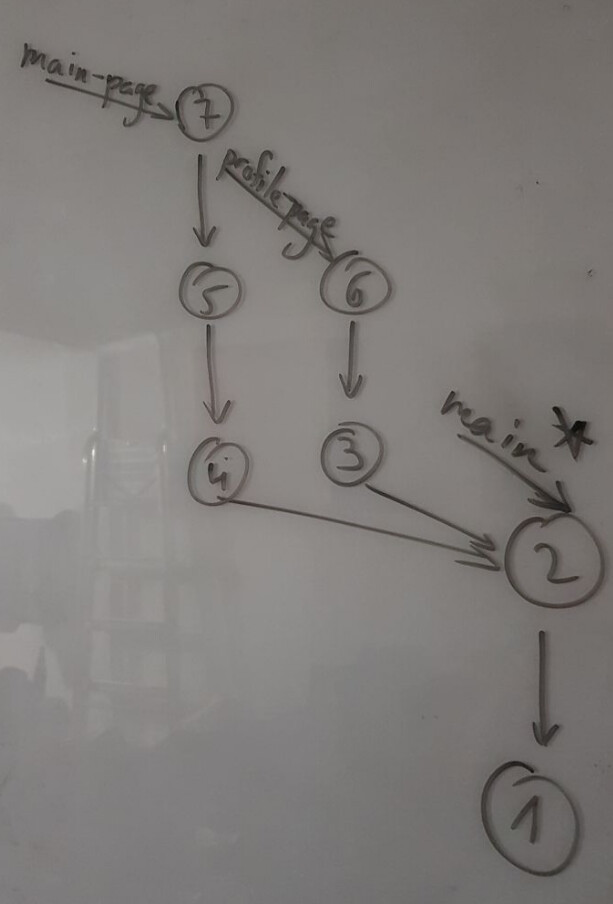 main-page
7
profile-page
5
6
main *
4
3
2
1